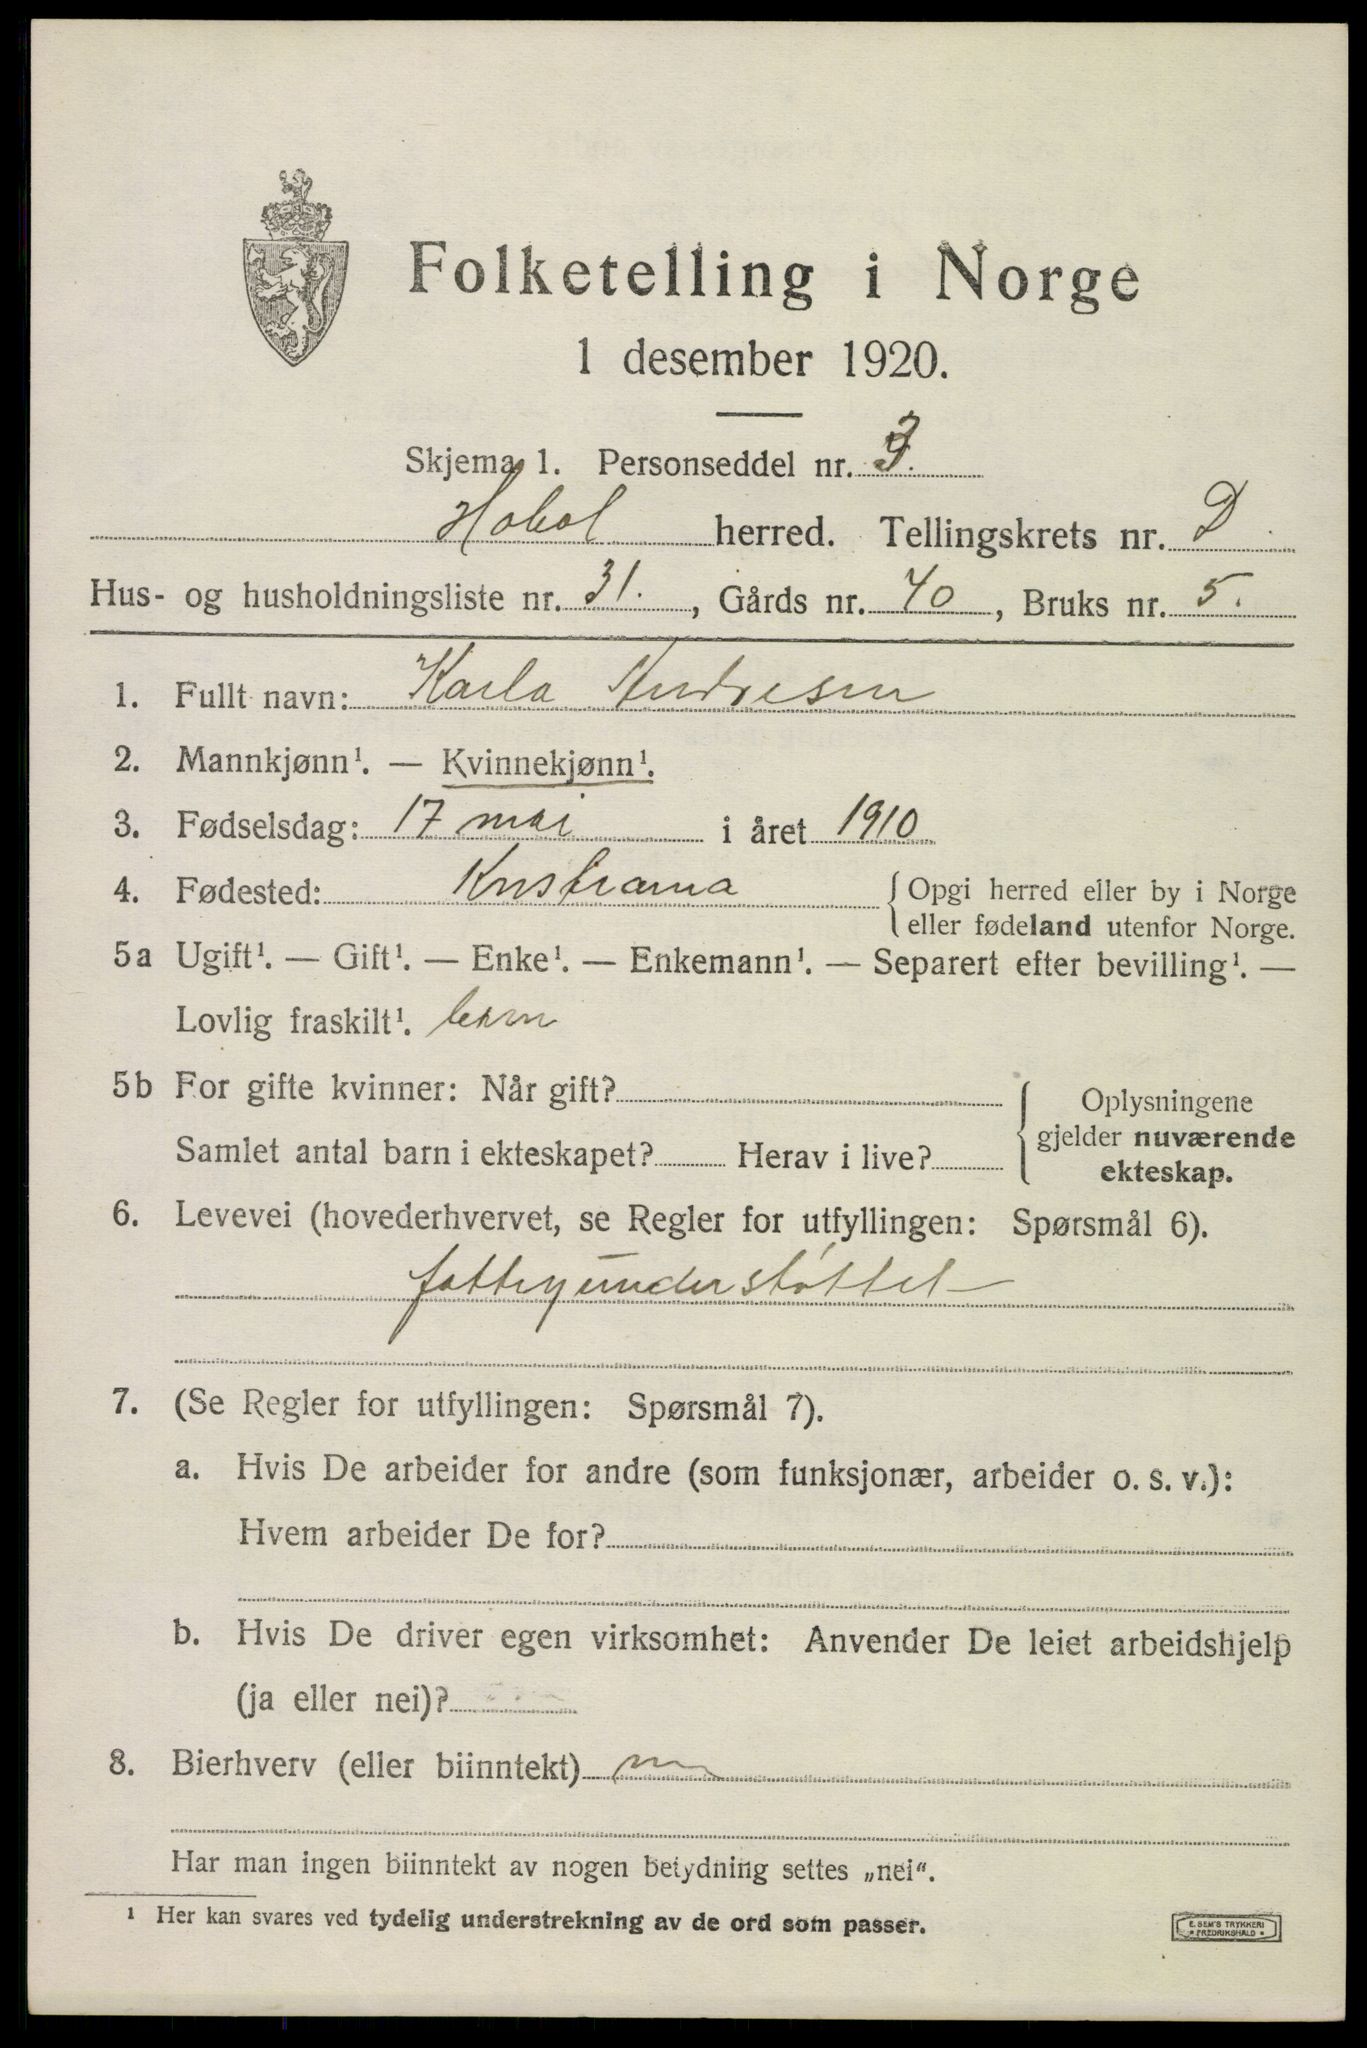 Folketelling i Norge
1 desember 1920.
Skjema 1. Personseddel nr. 3.
Hobøl herred. Tellingskrets nr. D.
Hus- og husholdningsliste nr. 31., Gårds nr. 40, Bruks nr. 5.
1. Fullt navn: Karla Andresen
2. Mannkjønn¹. — Kvinnekjønn¹.
3. Fødselsdag: 17 mai i året 1910
4. Fødested: Kristiania { Opgi herred eller by i Norge
eller fødeland utenfor Norge.
5a Ugift¹. — Gift¹. — Enke¹. — Enkemann¹. — Separert efter bevilling¹. —
Lovlig fraskilt¹. barn
5b For gifte kvinner: Når gift? { Oplysningene
gjelder nuværende
ekteskap.
Samlet antal barn i ekteskapet? Herav i live?
6. Levevei (hovederhvervet, se Regler for utfyllingen: Spørsmål 6).
fattigunderstøttet
7. (Se Regler for utfyllingen: Spørsmål 7).
a. Hvis De arbeider for andre (som funksjonær, arbeider o. s. v.):
Hvem arbeider De for?
b. Hvis De driver egen virksomhet: Anvender De leiet arbeidshjelp
(ja eller nei)?
8. Bierhverv (eller biinntekt)
Har man ingen biinntekt av nogen betydning settes „nei“.
¹ Her kan svares ved tydelig understrekning av de ord som passer.
E. SEM'S TRYKKERI
* FREDRIKSHALD *